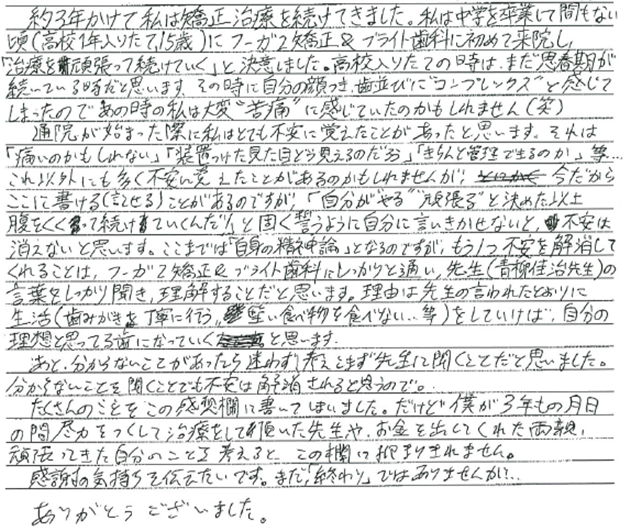 約3年かけて私は矯正治療を続けてきました。私は中学を卒業して間もない
頃(高校1年入りたて,15歳)にフーガ2矯正&ブライト歯科に初めて来院し,
「治療を頑張って続けていく」と決意しました。高校入りたての時は、まだ思春期が
続いている時だと思います。その時に自分の顔つき、歯並びに"コンプレックス"と感じて
しまったのであの時の私は大変"苦痛"に感じていたのかもしれません(笑)
通院が始まった際に私はとても不安に覚えたことがあったと思います。それは
「痛いのかもしれない」「装置つけた見た目どう見えるのだろう」「きちんと管理できるのか」等…
これ以外にも多く不安に覚えたことがあるのかもしれませんが、今だから
ここに書ける(言える)ことがあるのですが、「自分が"やる""頑張る"と決めた以上
腹をくくって続けていくんだ!」と固く誓うように自分に言いきかせないと、不安は
消えないと思います。ここまでは「自身の精神論」となるのですが、もう1つ不安を解消して
くれることは、フーガ2矯正&ブライト歯科にしっかりと通い、先生(青柳佳治先生)の
言葉をしっかり聞き、理解することだと思います。理由は先生の言われたとおりに
生活(歯みがきを丁寧に行う、堅い食べ物を食べない…等)をしていけば、自分の
理想と思ってる歯になっていくと思います。
あと、分からないことがあったら迷わず考えこまず先生に聞くことだと思いました。
分からないことを聞くことでも不安は解消されると思うので。
たくさんのことをこの感想欄に書いてしまいました。だけど僕が3年もの月日
の間尽力をつくして治療をして頂いた先生や、お金を出してくれた両親,
頑張ってきた自分のことを考えると、この欄に抑まりきれません。
感謝の気持ちを伝えたいです。まだ「終わり」ではありませんが…
ありがとうございました。